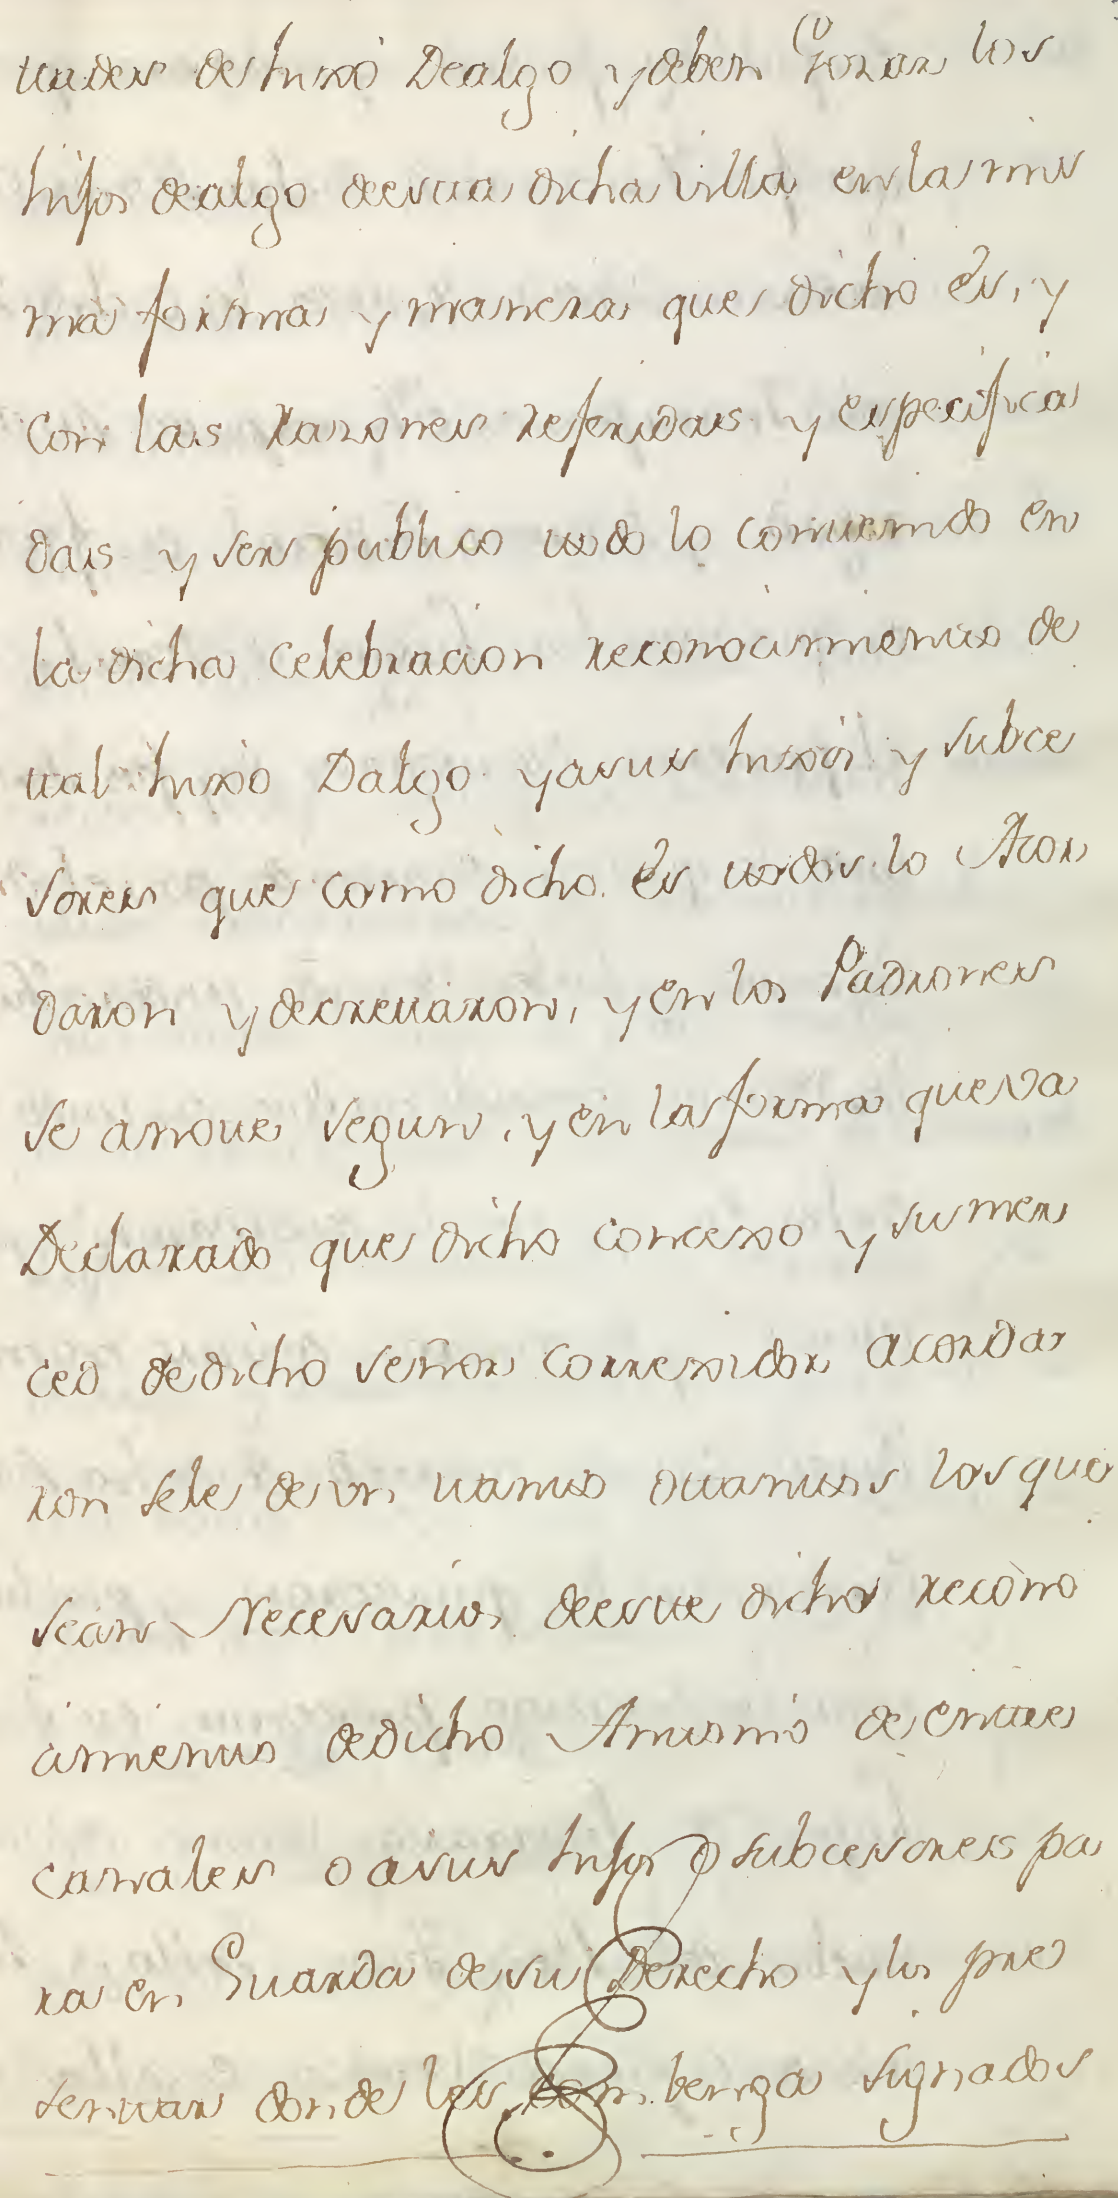 tades de hixo Dealgo y deben Gozar los
hijos dealgo deesta dicha villa en la mis
ma forma y manera que dicho es, y
con las razones referidas y especifica
das y ser publico todo lo contenido en
la dicha Celebracion reconocimiento de
tal hixo Dalgo y a sus hixos y subce
sores que como dicho es todos lo Acor
daron y decretaron, y en los Padrones
se annote segun, y en la forma que va
Declarado que dicho concexo y su mer
ced de dicho señor correxidor acorda
ron sele de un tanto o tantos los que
sean Necesarios deeste dicho recono
cimiento de dicho Antonio de entre
canales o a sus hijos o subcesores pa
ra en Guarda de su Derecho y los pre
sentar donde les combenga signados